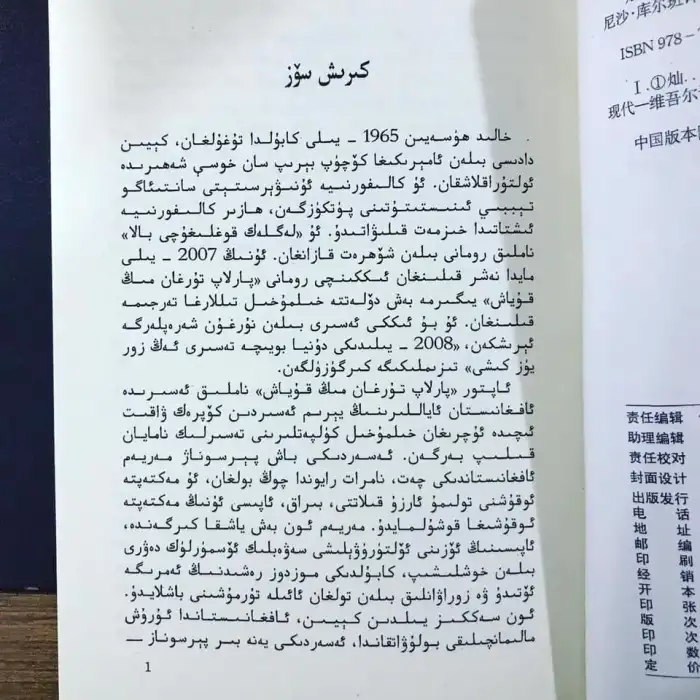 كىرىش سۆز
خالىد ھۈسەيىن 1965 - يىلى كابۇلدا تۇغۇلغان، كېيىن
دادىسى بىلەن ئامېرىكىغا كۆچۈپ بېرىپ سان خوسې شەھىرىدە
ئولتۇراقلاشقان. ئۇ كالىفورنىيە ئۇنىۋېرسىتېتى سانتىئاگو
تېببىي ئىنىستىتۇتىنى پۈتكۈزگەن، ھازىر كالىفورنىيە
ئىشتاتىدا خىزمەت قىلىۋاتىدۇ. ئۇ «لەگلەك قوغلىغۇچى بالا»
ناملىق رومانى بىلەن شۆھرەت قازانغان. ئۇنىڭ 2007 - يىلى
مايدا نەشر قىلىنغان ئىككىنچى رومانى «پارلاپ تۇرغان مىڭ
قۇياش» يىگىرمە بەش دۆلەتتە خىلمۇخىل تىللارغا تەرجىمە
قىلىنغان. ئۇ بۇ ئىككى ئەسىرى بىلەن نۇرغۇن شەرەپلەرگە
ئېرىشكەن، «2008 - يىلىدىكى دۇنيا بويىچە تەسىرى ئەڭ زور
يۈز كىشى» تىزىملىكىگە كىرگۈزۈلگەن.
ئاپتور «پارلاپ تۇرغان مىڭ قۇياش» ناملىق ئەسىرىدە
ئافغانىستان ئاياللىرىنىڭ يېرىم ئەسىردىن كۆپرەك ۋاقىت
ئىچىدە ئۇچرىغان خىلمۇخىل كۈلپەتلىرىنى تەسىرلىك نامايان
قىلىپ بەرگەن. ئەسەردىكى باش پېرسوناژ مەريەم
ئافغانىستاندىكى چەت، نامرات رايوندا چوڭ بولغان، ئۇ مەكتەپتە
ئوقۇشنى تولىمۇ ئارزۇ قىلاتتى، بىراق، ئاپىسى ئۇنىڭ مەكتەپتە
ئوقۇشىغا قوشۇلمايدۇ. مەريەم ئون بەش ياشقا كىرگەندە،
ئاپىسىنىڭ ئۆزىنى ئۆلتۈرۈۋېلىشى سەۋەبلىك ئۆسمۈرلۈك دەۋرى
بىلەن خوشلىشىپ، كابۇلدىكى موزدوز رەشىدنىڭ ئەمرىگە
ئۆتىدۇ ۋە زوراۋانلىق بىلەن تولغان ئائىلە تۇرمۇشىنى باشلايدۇ.
ئون سەككىز يىلدىن كېيىن، ئافغانىستاندا ئۇرۇش
مالىمانچىلىقى بولۇۋاتقاندا، ئەسەردىكى يەنە بىر پېرسوناژ —
1
尼沙·库尔班
ISBN 978-
Ⅰ.①灿..
现代—维吾尔
中国版本
责任编辑
助理编辑
责任校对
封面设计
出版发行
电 话
地 址
邮 编
印 刷
经 销
开 本
印 张
版 次
印 次
印 数
定 价